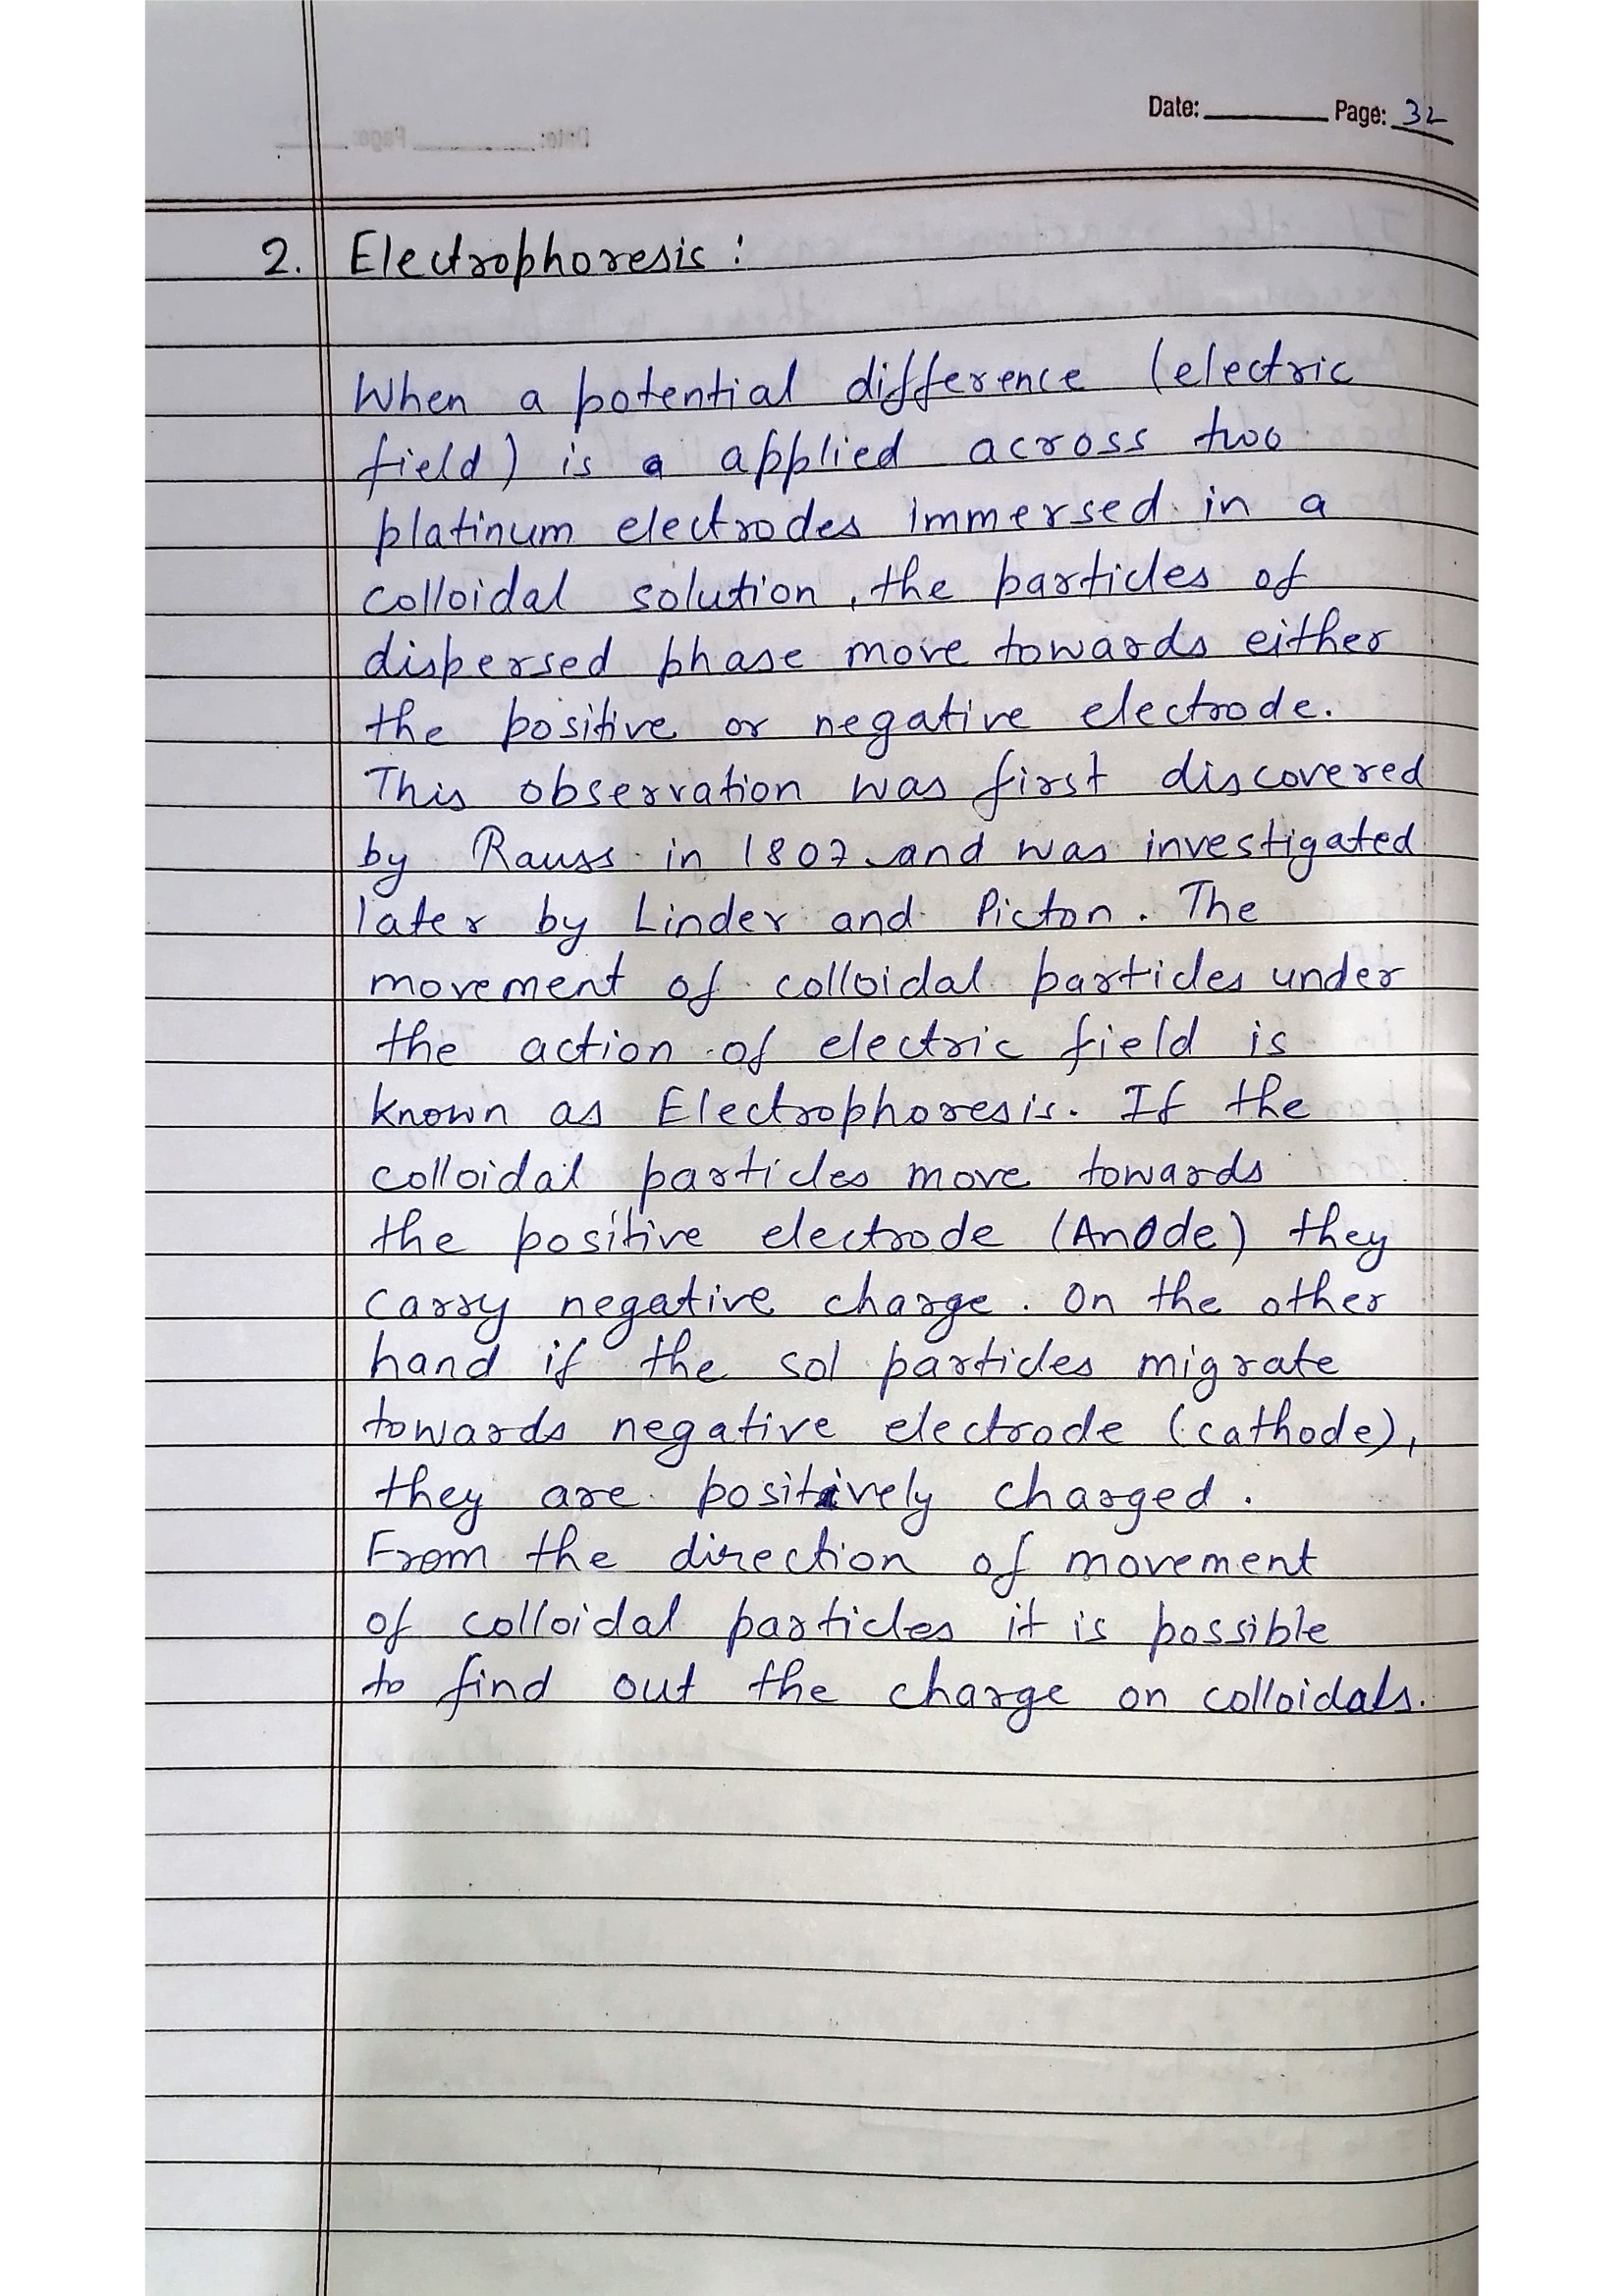 Date: Page: 32
2. Electrophoresis :
When a potential difference (electric
field) is a applied across two
platinum electrodes immersed in a
colloidal solution, the particles of
dispersed phase move towards either
the positive or negative electrode.
This observation was first discovered
by Rauss in 1807 and was investigated
later by Linder and Picton. The
movement of colloidal particles under
the action of electric field is
known as Electrophoresis. If the
colloidal particles move towards
the positive electrode (Anode) they
carry negative charge. On the other
hand if the sol particles migrate
towards negative electrode (cathode),
they are positively charged.
From the direction of movement
of colloidal particles it is possible
to find out the charge on colloidals.